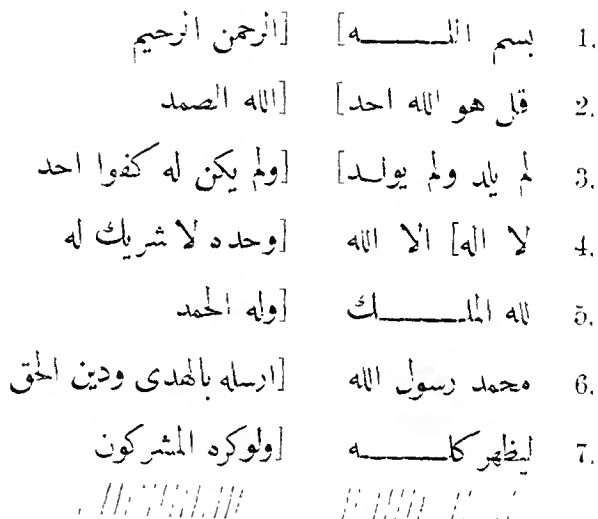 1. بسم اللـــــــه] [الرحمن الرحيم
2. قل هو الله احد] [الله الصمد
3. لم يلد ولم يولــد] [ولم يكن له كفوا احد
4. لا اله] الا الله [وحده لا شريك له
5. لله الملـــــــك [وله الحمد
6. محمد رسول الله [ارسله بالهدى ودين الحق
7. ليظهر كلـــــــه [ولوكره المشركون